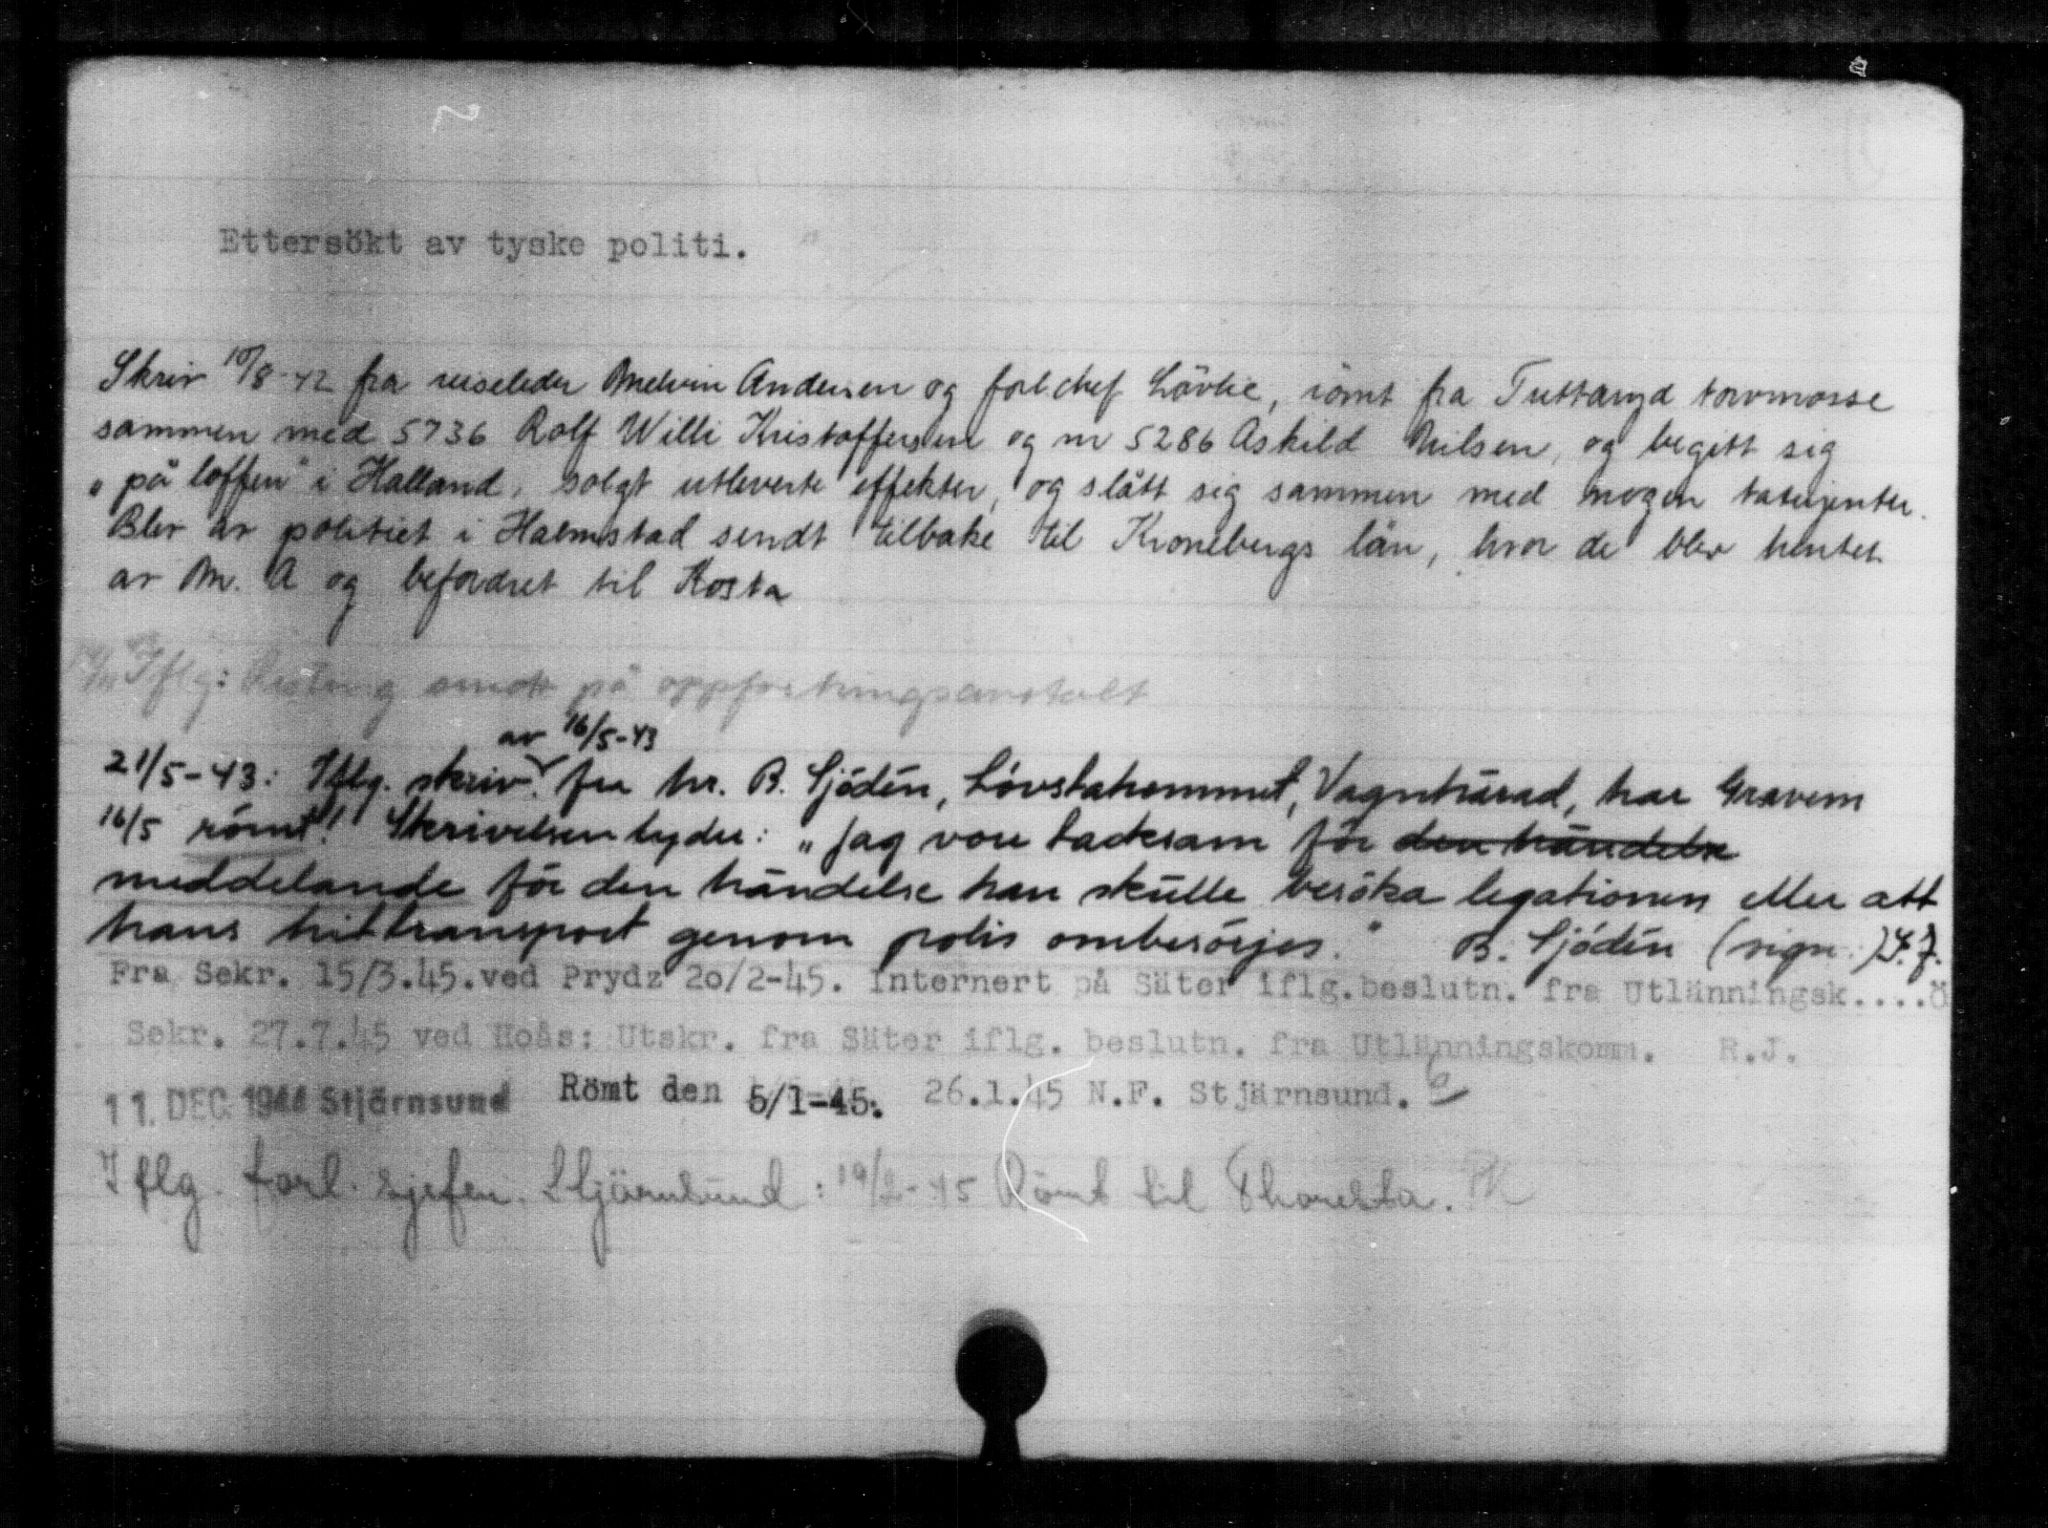 Ettersökt av tyske politi.
Skriv 10/8-42 fra reiseleder Melvin Andersen og forl.chef Lövlie, römt fra Tuttaryd torvmosse
sammen med 5736 Rolf Willi Kristoffersen og nr 5286 Askild Nilsen, og begitt sig
„på loffen" i Halland, solgt utleverte effekter, og slått sig sammen med nogen taterjenter.
Blev av politiet i Halmstad sendt tilbake til Kronebergs län, hvor de blev hentet
av M. A og befordret til Kosta
Iflg: på oppfostringsanstalt
av 16/5-43
21/5-43: Iflg. skriv. fra hr. B. Sjödén, Lövstahemmet, Vagnhärad, har Gravem
16/5 römt! Skrivelsen lyder: „Jag vore tacksam för den händelse
meddelande för den händelse han skulle besöka legationen eller att
hans hittransport genom polis ombesörjes." B. Sjödén (sign.) S.J.
Fra Sekr. 15/3.45.ved Prydz 2o/2-45. Internert på Säter iflg.beslutn. fra Utlänningsk....Ö
Sekr. 27.7.45 ved Hoås: Utskr. fra Säter iflg. beslutn. fra Utlänningskomm. R.J.
11. DEC. 1944 Stjärnsund Römt den 5/1-45. 26.1.45 N.F. Stjärnsund.
Iflg. forl. sjefen. Stjärnsund: 19/2-45 Römt til Thoresta.